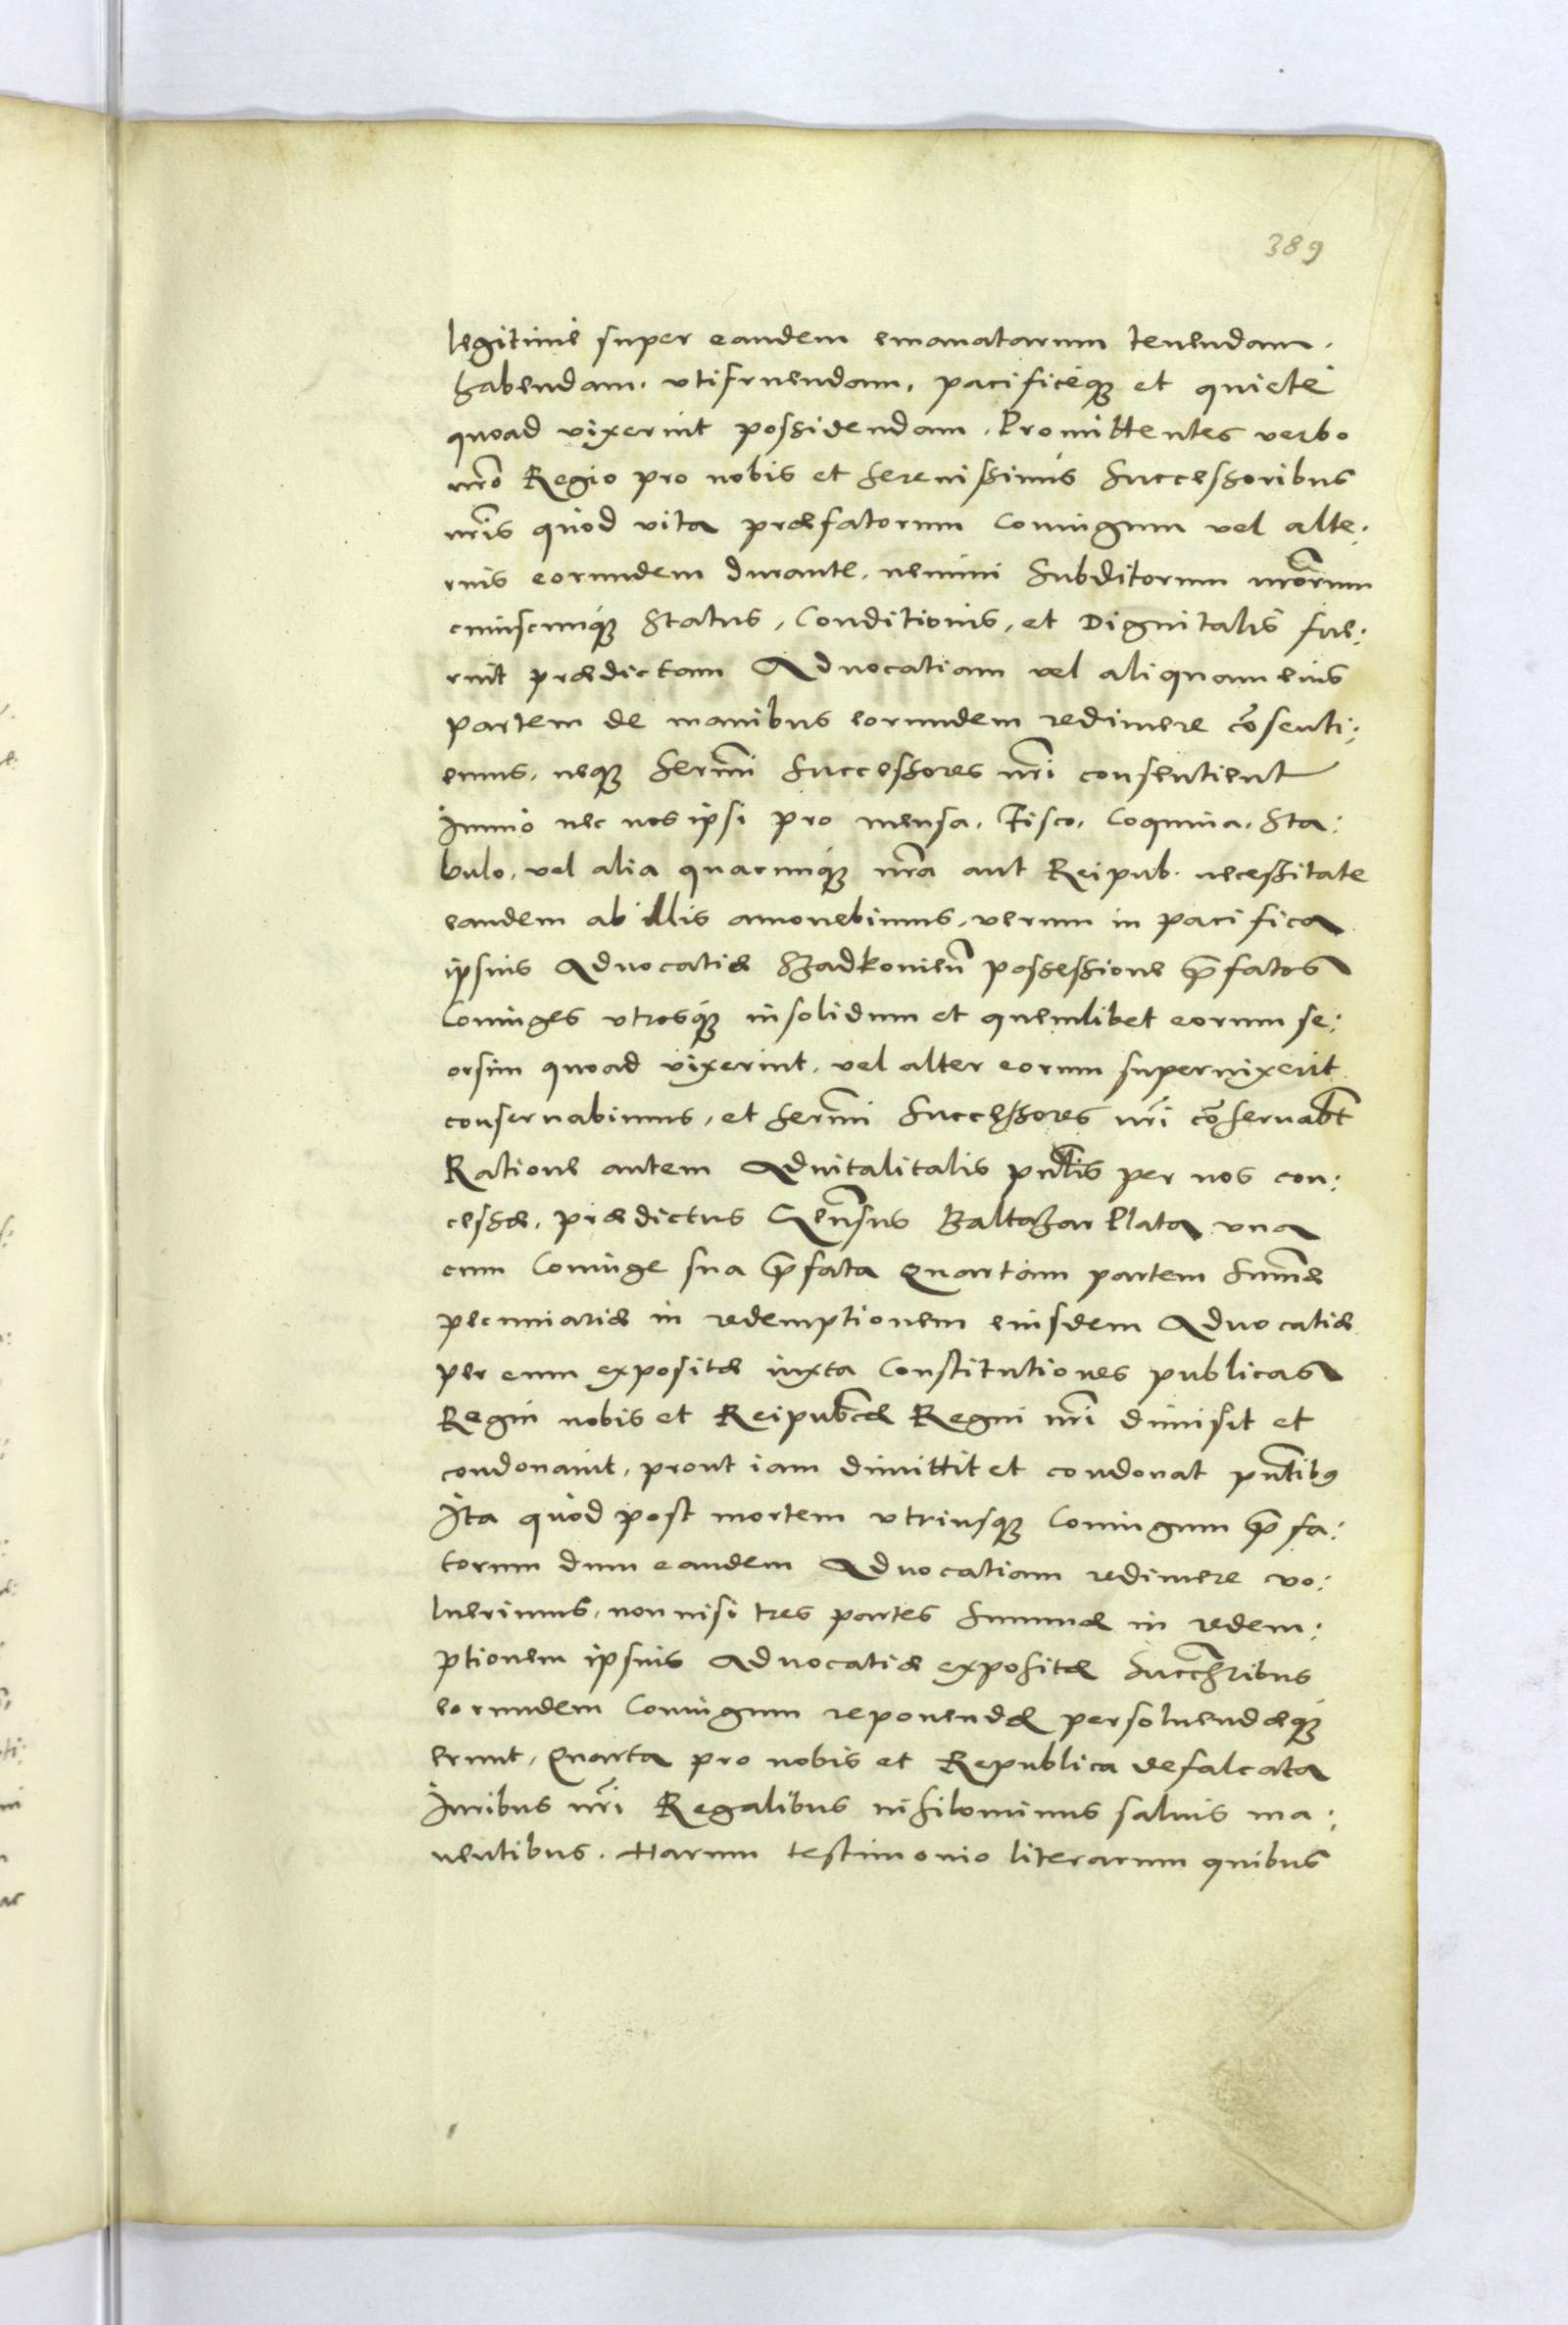 389
legitimè super eandem emanatarum tenendam.
habendam. vtifruendam, pacificéq3 et quietè
quoad vixerint possidendam. Promittentes verbo
nr̃o Regio pro nobis et Serenissimis Successoribus
nr̃is quòd vita præfatorum Coniugum vel alte:
rius eorundem durante, nemini Subditorum nr̃orum
cuiuscunq3 Status, Conditionis, et Dignitatis fue:
rint prædictam Aduocatiam vel aliquam eius
partem de manibus eorundem redimere cõsenti:
emus, neq3 Serm̃i Successores nr̃i consentient
Immò nec nos ipsi pro mensa, Fisco, Coquina, Sta:
bulo, vel alia quacunq3 nr̃a aut Reipub. necessitate
eandem ab illis amouebimus, verum in pacifica
ipsius Aduocatiæ Szadkovieñ possessione p̃fatos
Coniuges vtrosq3 insolidum et quemlibet eorum se:
orsim quoad vixerint, vel alter eorum superuixerit
conseruabimus, et Serm̃i Successores nr̃i cõseruabt̃
Ratione autem Aduitalitatis pñtis per nos con:
cessæ, prædictus Geñsus Baltazar Plata vna
cum Coniuge sua p̃fata Quartam partem Sum̃æ
pecuniariæ in redemptionem eiusdem Aduocatiæ
per eum expositæ iuxta Constitutiones publicas
Regni nobis et Reipubcæ̃ Regni nr̃i dimisit et
condonauit, prout iam dimittit et condonat pñtib9
Ita quòd post mortem vtriusq3 Coniugum p̃fa:
torum dum eandem Aduocatiam redimere vo:
luerimus, non nisi tres partes Summæ in redem:
ptionem ipsius Aduocatiæ expositæ Succr̃ibus
eorundem Coniugum reponendæ persoluendæq3
erunt, Quarta pro nobis et Republica defalcata
Iuribus nr̃i Regalibus nihilominus saluis ma:
nentibus. Harum testimonio literarum quibus